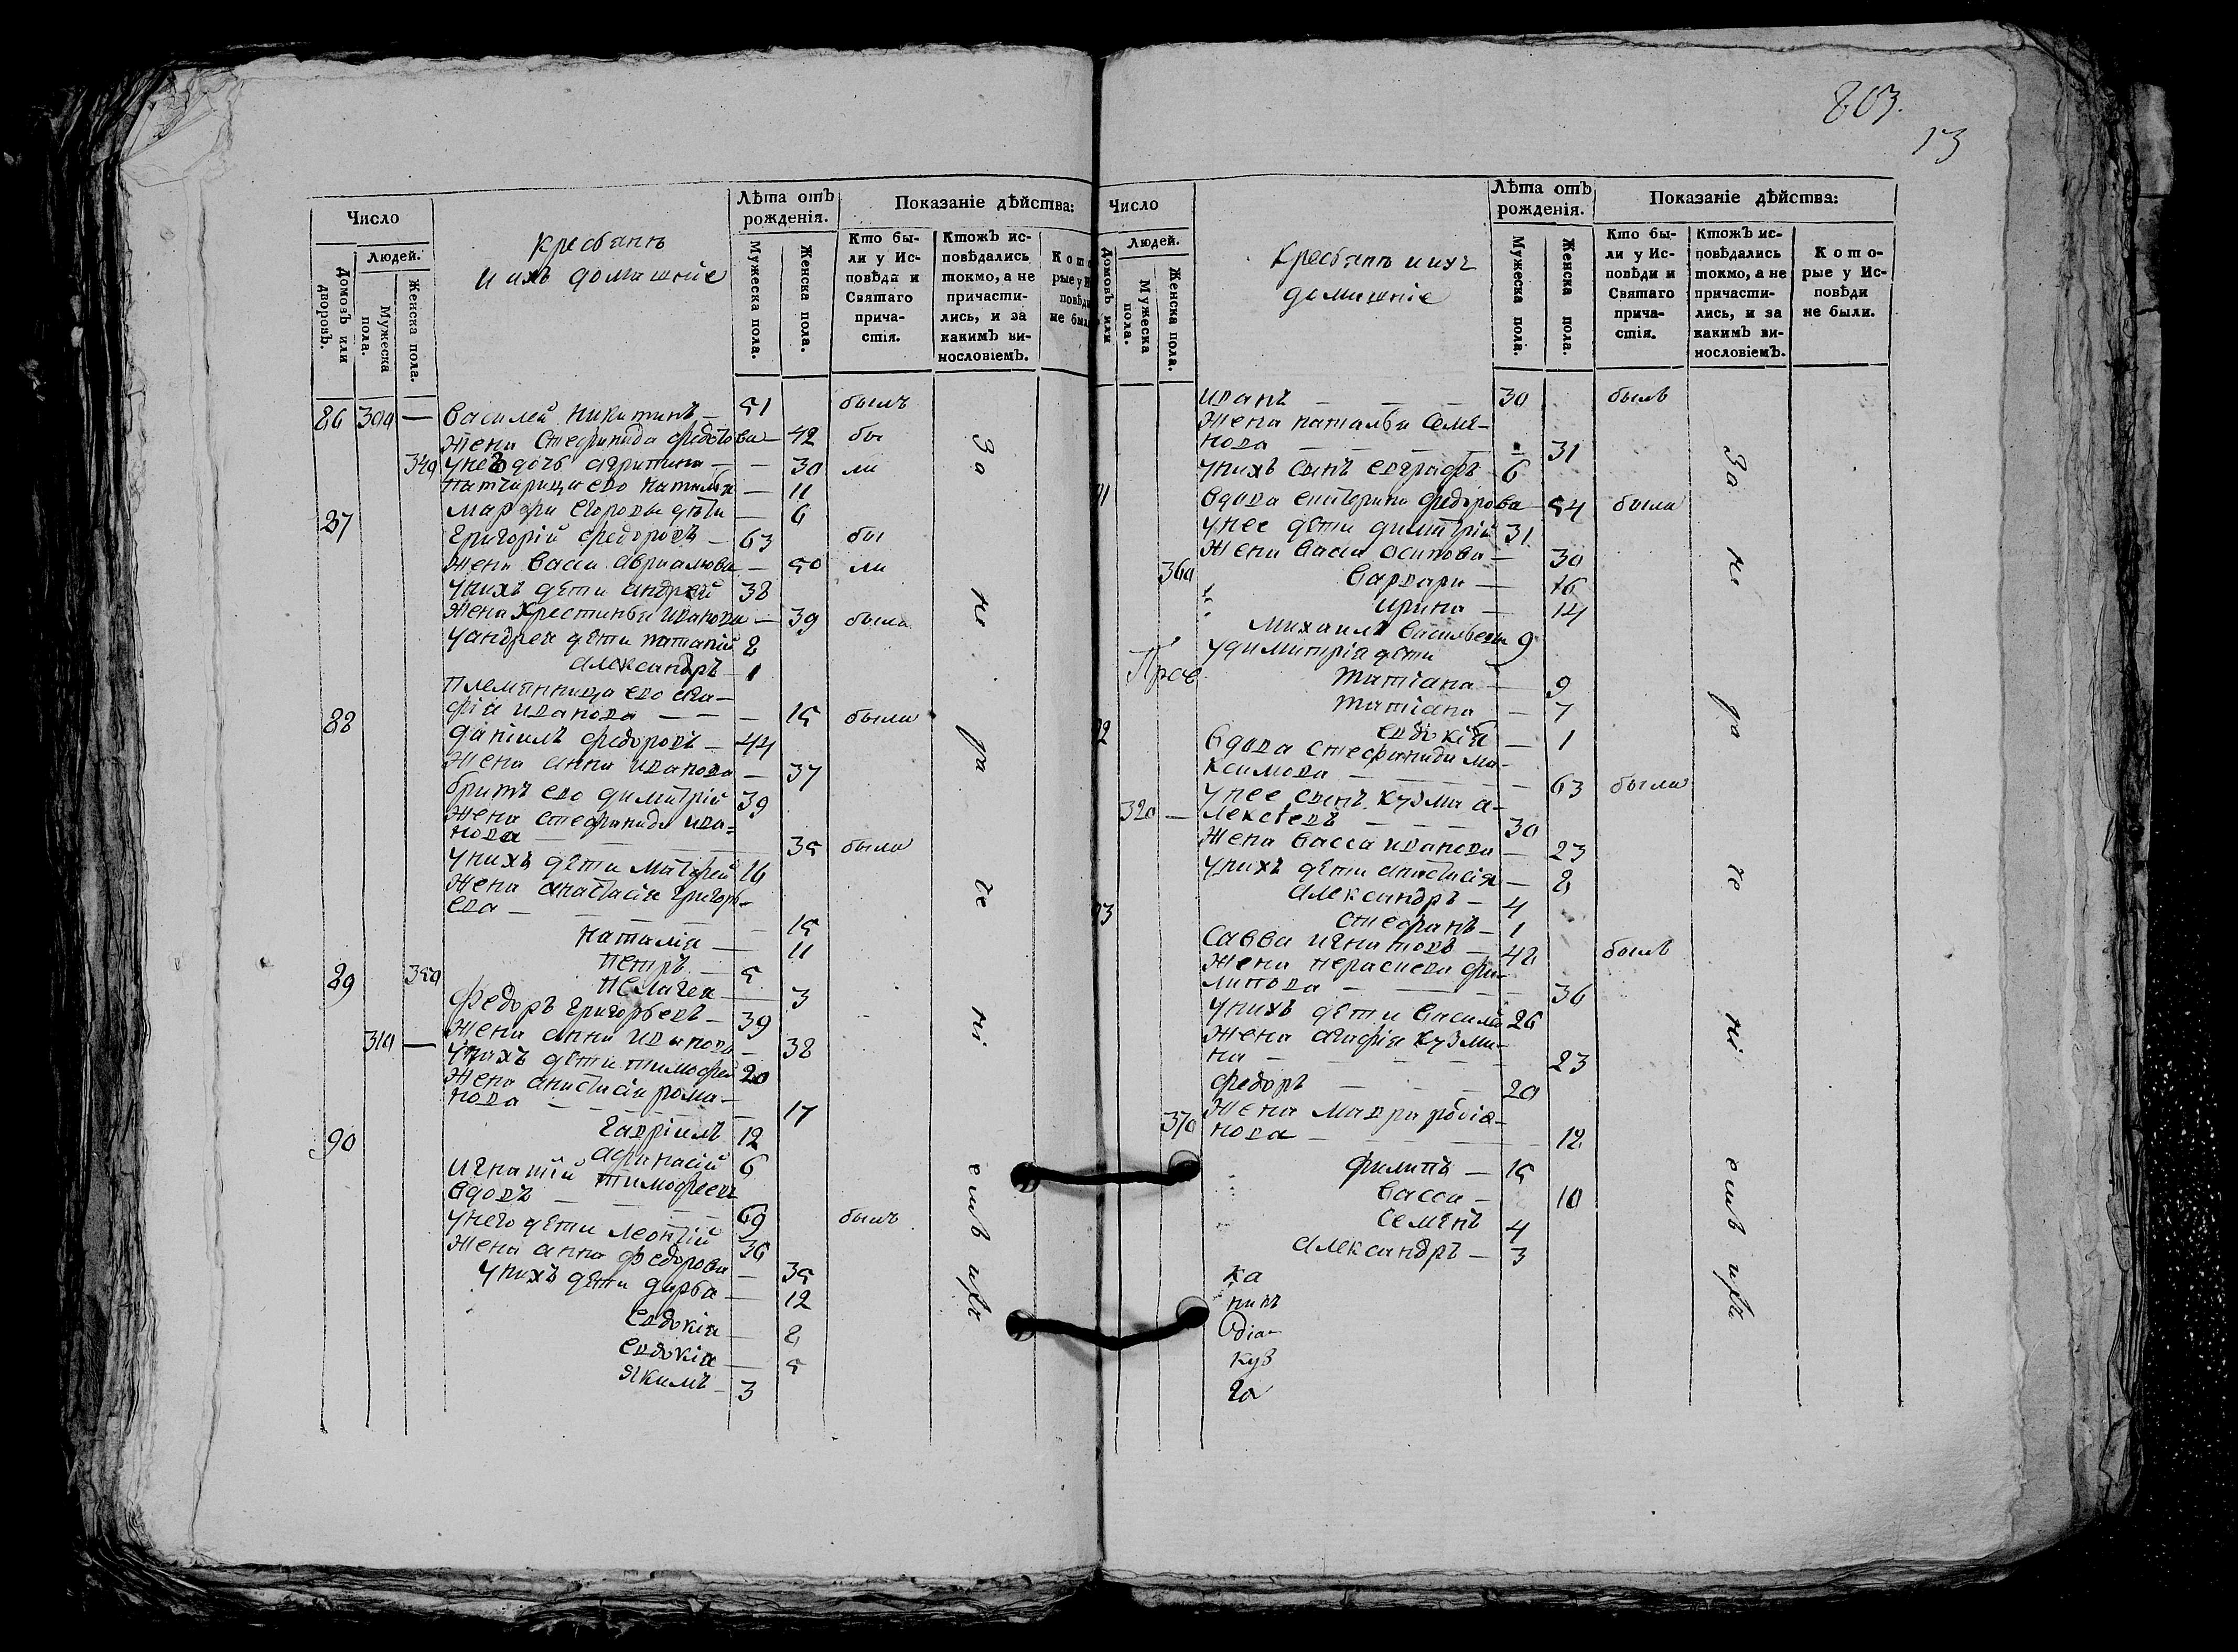 803.
13
Число
Людей.
Домовъ или дворовъ.
Мужеска пола.
Женска пола.
Крестьянѣ
и ихъ домашніе
Лѣта отъ рожденія.
Мужеска пола.
Женска пола.
Показаніе дѣйства:
Кто бы-
ли у Ис-
повѣди и
Святаго
прича-
стія.
Ктожъ ис-
повѣдались
токмо, а не
причасти-
лись, и за
какимъ ви-
нословіемъ.
86 300 — Василей Никитинъ — 51 былъ
Жена Стефанида Федотова — 42 бы
340 У нев дочь Агрипина — — 30 ли
Натталья — 11
Марфа Егоровы дѣти — 6
87 Григорій Федоровъ — 63 бы
Жена Васса — 50 ли
У нихъ дѣти Андрей 38
Жена Христинья Иванова — 39 была
У Андрея дѣти 8
Александръ — 1
Племянница ево Ага-
фія Иванова — — — 15 была
88 Даніилъ Федоровъ — 44
Жена Анна Иванова — 37
братъ ево Димитрій 39
Жена Стефанида Ива-
нова — 35 была
У нихъ дѣти Матфей 16
Жена Анастасія Григорь-
ева — 15
Наталія — 11
Петръ — 5
350 Пелагея — 3
89 Федоръ Григорьевъ — 39
Жена Анна Иванова — 38
310 — У нихъ дѣти Тимофей 20
Жена Анастасія Рома-
нова — 17
Гавріилъ 12
Афанасій 6
90 Игнатій Тимофеевъ
вдовъ — 69 былъ
У него дѣти Леонтій 36
Жена Анна Федорова — 35
У нихъ дѣти Дарья — 12
Евдокія — 8
Евдокія — 5
Якимъ — 3
За не ра че ні емъ ихъ
Число
Людей.
Домовъ или
Мужеска пола.
Женска пола.
Крестьянѣ и ихъ
домашніе
Лѣта отъ рожденія.
Мужеска пола.
Женска пола.
Показаніе дѣйства:
Кто бы-
ли у Ис-
повѣди и
Святаго
прича-
стія.
Ктожъ ис-
повѣдались
токмо, а не
причасти-
лись, и за
какимъ ви-
нословіемъ.
Кото-
рые у Ис-
повѣди
не были.
Иванъ — — — 30 былъ
Жена Наталья Семе-
нова — 31
У нихъ сынъ Евграфъ — 6
вдова Екатерина Федорова — 54 была
У нее дѣти Димитрій 31
Жена Васса Осипова — 30
360 Варвара — 16
Ирина — 14
Михаилъ Васильевъ 9
У Димитрія дѣти
Татіана — 9
Татіана — 7
Евдокія — 1
вдова Стефанида Ма-
ксимова — 63 была
У нее сынъ Кузма А-
320 — лексѣевъ — 30
Жена Васса Иванова — 23
У нихъ дѣти Анастасія — 8
Александръ — 4
Стефанъ — 1
Савва Игнатовъ — 42 былъ
Жена Параскева Фи-
липова — 36
У нихъ дѣти Василій 26
Жена Агафія Кузми-
на — 23
Федоръ — 20
370 Жена Мавра Родіо-
нова — 18
Филипъ — 15
Васса — 10
Семенъ 4
Александръ — 3
ка
никъ
Одіа-
Куз
За не ра че ні емъ ихъ